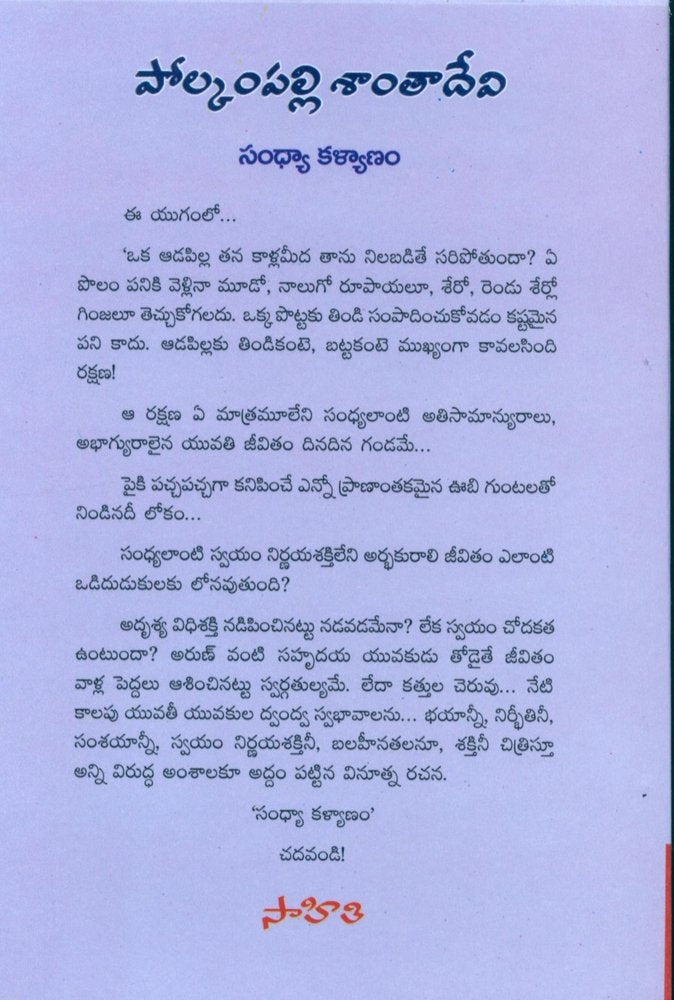 పోల్కంపల్లి శాంతాదేవి
సంధ్యా కళ్యాణం
ఈ యుగంలో...
'ఒక ఆడపిల్ల తన కాళ్లమీద తాను నిలబడితే సరిపోతుందా? ఏ
పొలం పనికి వెళ్లినా మూడో, నాలుగో రూపాయలూ, శేరో, రెండు శేర్లో
గింజలూ తెచ్చుకోగలదు. ఒక్క పొట్టకు తిండి సంపాదించుకోవడం కష్టమైన
పని కాదు. ఆడపిల్లకు తిండికంటె, బట్టకంటె ముఖ్యంగా కావలసింది
రక్షణ!
ఆ రక్షణ ఏ మాత్రమూలేని సంధ్యలాంటి అతిసామాన్యురాలు,
అభాగ్యురాలైన యువతి జీవితం దినదిన గండమే...
పైకి పచ్చపచ్చగా కనిపించే ఎన్నో ప్రాణాంతకమైన ఊబి గుంటలతో
నిండినదీ లోకం...
సంధ్యలాంటి స్వయం నిర్ణయశక్తిలేని అర్భకురాలి జీవితం ఎలాంటి
ఒడిదుడుకులకు లోనవుతుంది?
అదృశ్య విధిశక్తి నడిపించినట్టు నడవడమేనా? లేక స్వయం చోదకత
ఉంటుందా? అరుణ్ వంటి సహృదయ యువకుడు తోడైతే జీవితం
వాళ్ల పెద్దలు ఆశించినట్టు స్వర్గతుల్యమే. లేదా కత్తుల చెరువు... నేటి
కాలపు యువతీ యువకుల ద్వంద్వ స్వభావాలను... భయాన్నీ, నిర్భీతినీ,
సంశయాన్నీ, స్వయం నిర్ణయశక్తినీ, బలహీనతలనూ, శక్తినీ చిత్రిస్తూ
అన్ని విరుద్ధ అంశాలకూ అద్దం పట్టిన వినూత్న రచన.
'సంధ్యా కళ్యాణం'
చదవండి!
సాహితి